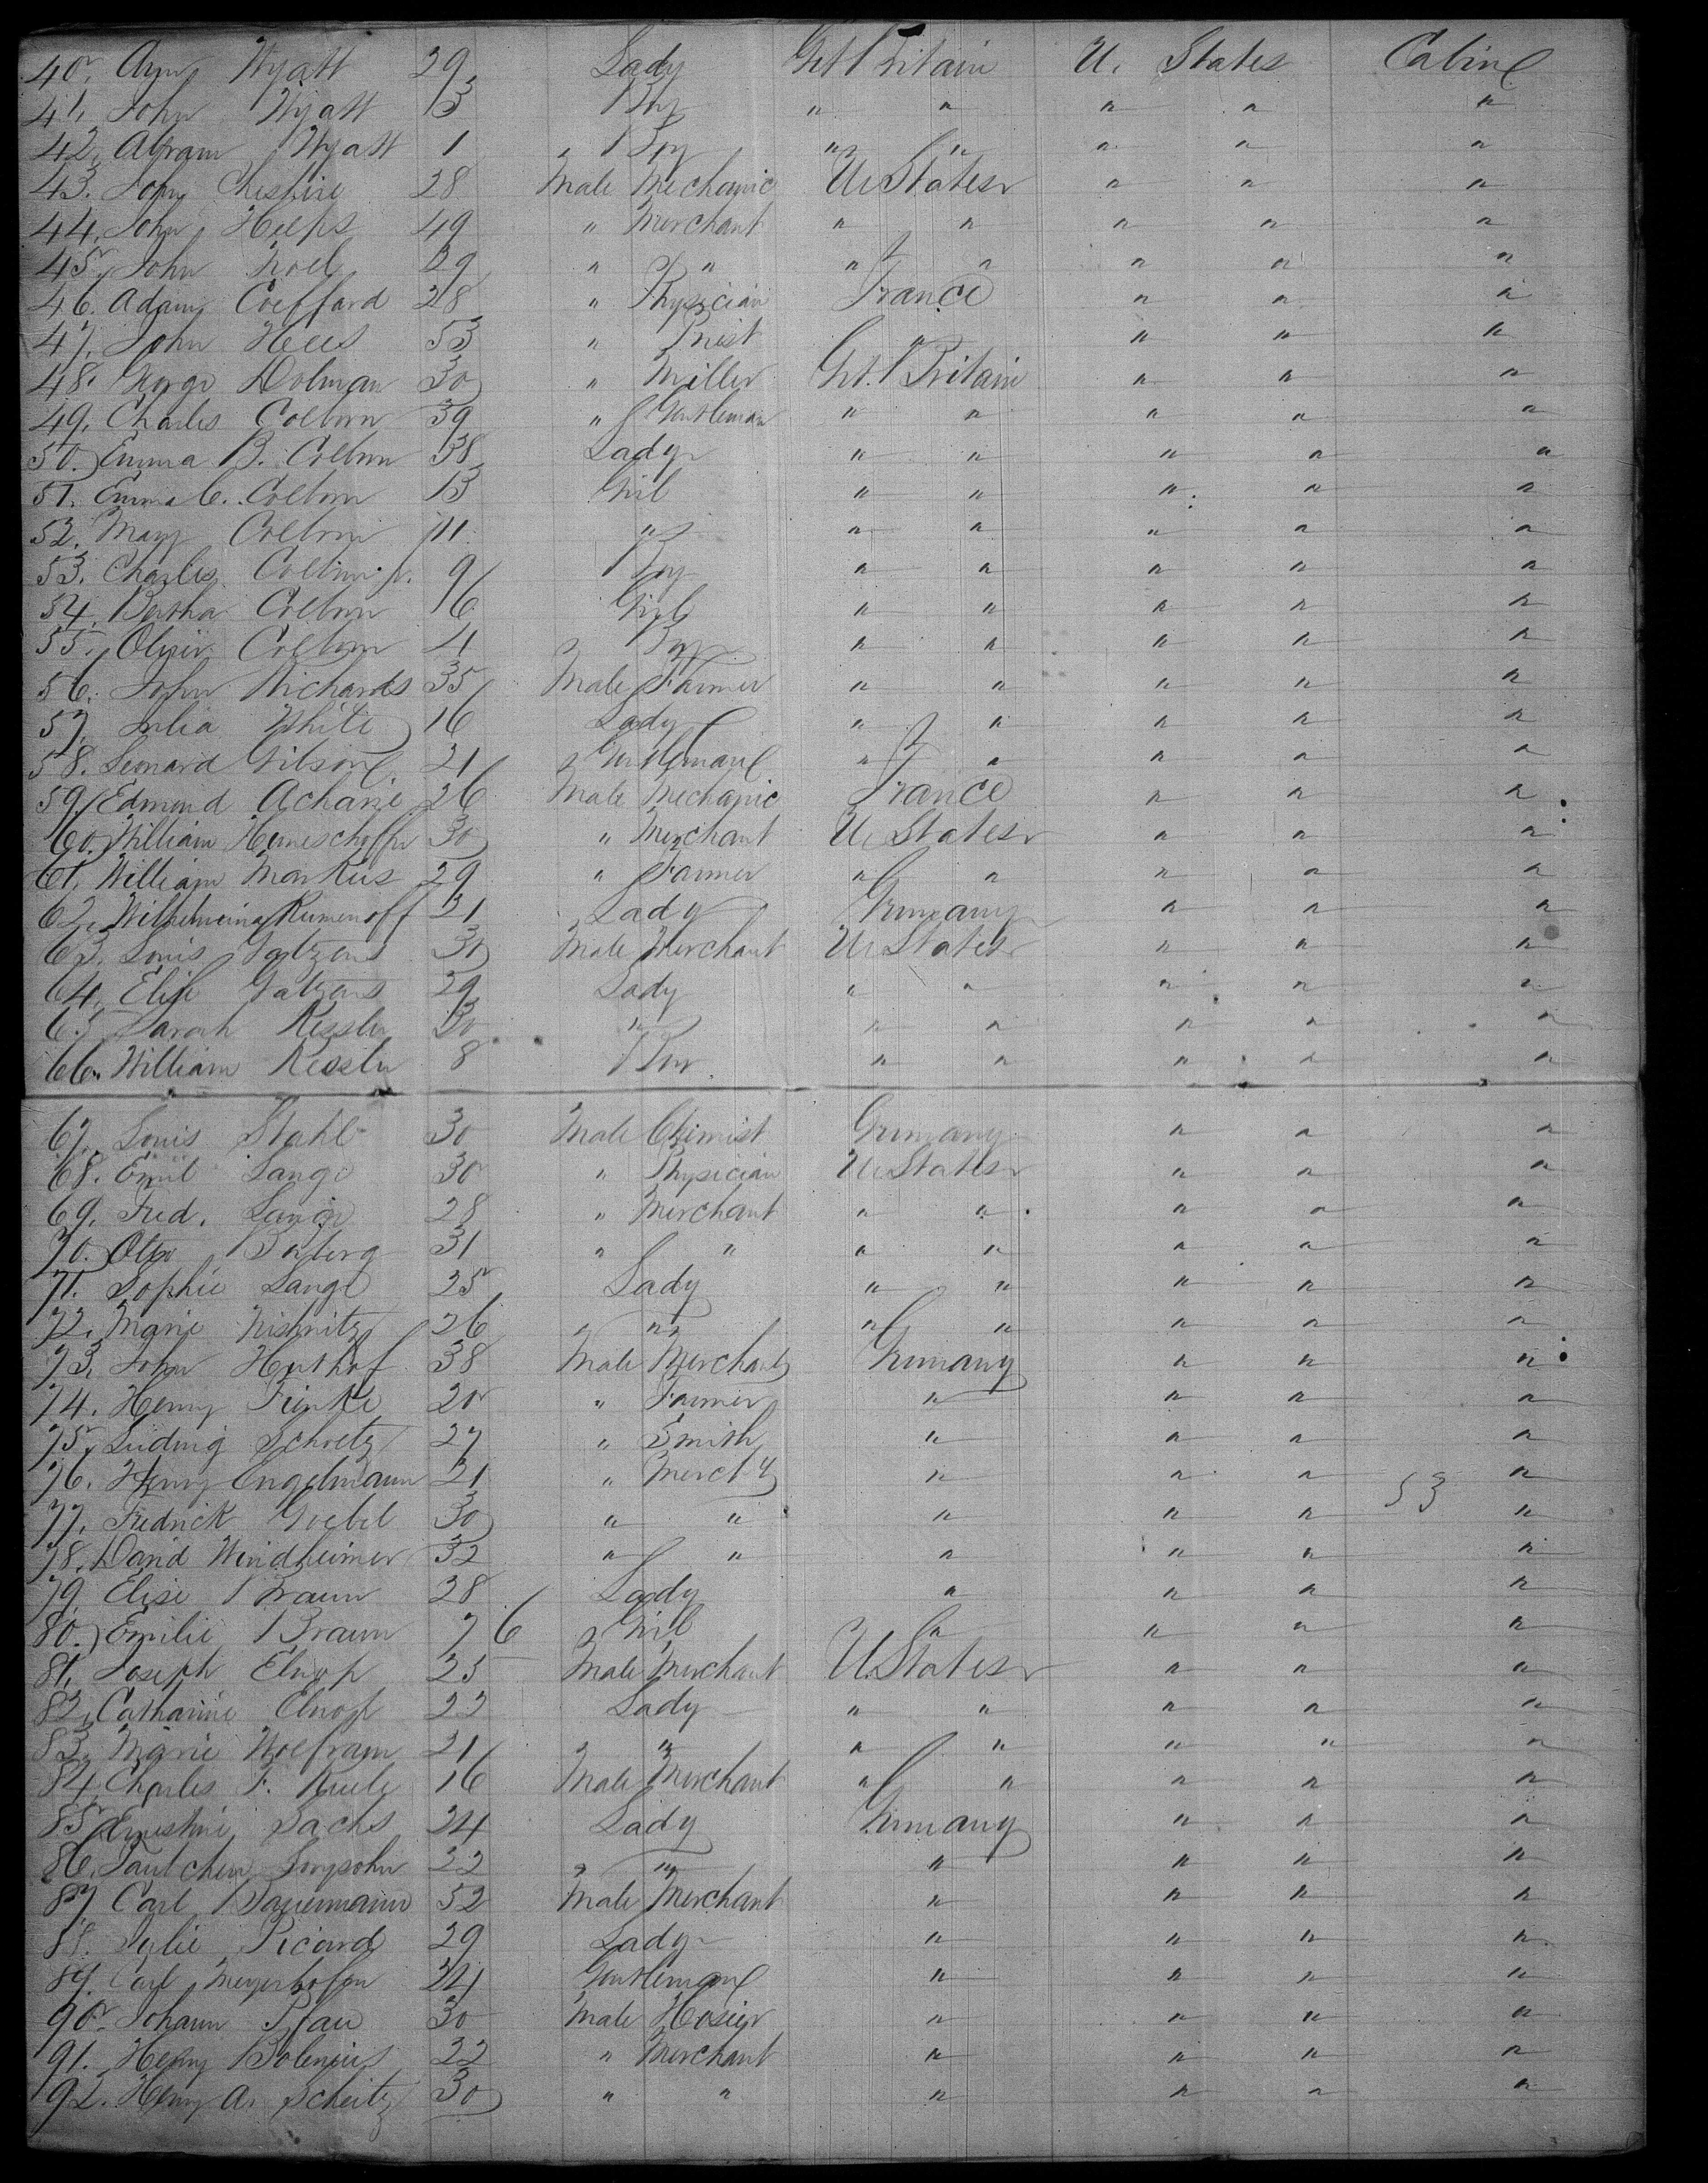 40. Ann Wyatt 29. Lady Gt Britain U. States Cabine
41. John Wyatt 13 Boy " " " " "
42. Abram Wyatt 1 " Boy " " " " "
43. John Cheshire 28 Male Mechanic U. States " " "
44. John Heeps 49 " Merchant " " " " "
45. John Noel 39 " " " " " " "
46. Adam Coeffard 28 " Physician France " " "
47. John Hees 53 " Priest " " " "
48. George Dolman 30 " Miller Gt. Britain " " "
49. Charles Colborn 39 " Gentleman " " " " "
50. Emma B. Colborn 38 Lady " " " " "
51. Emma C. Colborn 13 Girl " " " " "
52. Mary Colborn 11 " " " " " "
53. Charles Colborn jr. 9 Boy " " " " "
54. Bertha Colborn 6 Girl " " " " "
55. Oliver Colborn 4 " Boy " " " " "
56. John Richards 35 Male Farmer " " " " "
57. Julia White 16 Lady " " " " "
58. Leonard Gibson 21 " Gentleman " " " " "
59. Edmond Acharie 26 Male Mechanic France " " "
60. William 30 " Merchant U. States " " "
61. William Markus 29 " Farmer " " " " "
62. Wilhelmina Rumenoff 21 " Lady Germany " " "
63. Louis Gatzens 30 Male Merchant U. States " " "
64. Elise Gatzens 29 Lady " " " " "
65. Sarah Kessler 30 " " " " " "
66. William Kessler 8 Boy " " " " "
67. Louis Stahl 30 Male Chimist Germany " " "
68. Emil Lange 30 " Physician U. States " " "
69. Fred. Lange 28 " Merchant " " " " "
70. Otto 31 " " " " " " "
71. Sophie Lange 25 Lady " " " " "
72. Marie 26 " " " " " " "
73. John Huthof 38 Male Merchant Germany " " "
74. Henry Finke 20 " Farmer " " " "
75. Ludwig Schretz 27 " Smith " " " "
76. Henry Engelmann 21 " Mercht " " " "
53
77. Fredrick Goebel 30 " " " " " "
78. David Windheimer 32 " " " " " "
79. Elise Braun 28 Lady " " " "
80. Emilie Braun 7 6 " Girl " " " "
81. Joseph Elnop 25 Male Merchant U. States " " "
82. Catharine Elnop 22 Lady " " " " "
83. Marie Wolfram 21 " " " " " " "
84. Charles F. 16 Male Merchant " " " " "
85. Ernestine Sachs 24 Lady Germany " " "
86. 22 " " " " " "
87. Carl Bauermann 52 Male Merchant " " " "
88. Julie Picard 29 Lady " " " "
89. Carl Meyerhofen 24 Gentleman " " " "
90. Johann Pfau 30 Male Hosier " " " "
91. Henry Bolenius 22 " Merchant " " " "
92. Henry A. Scheitz 30 " " " " " "